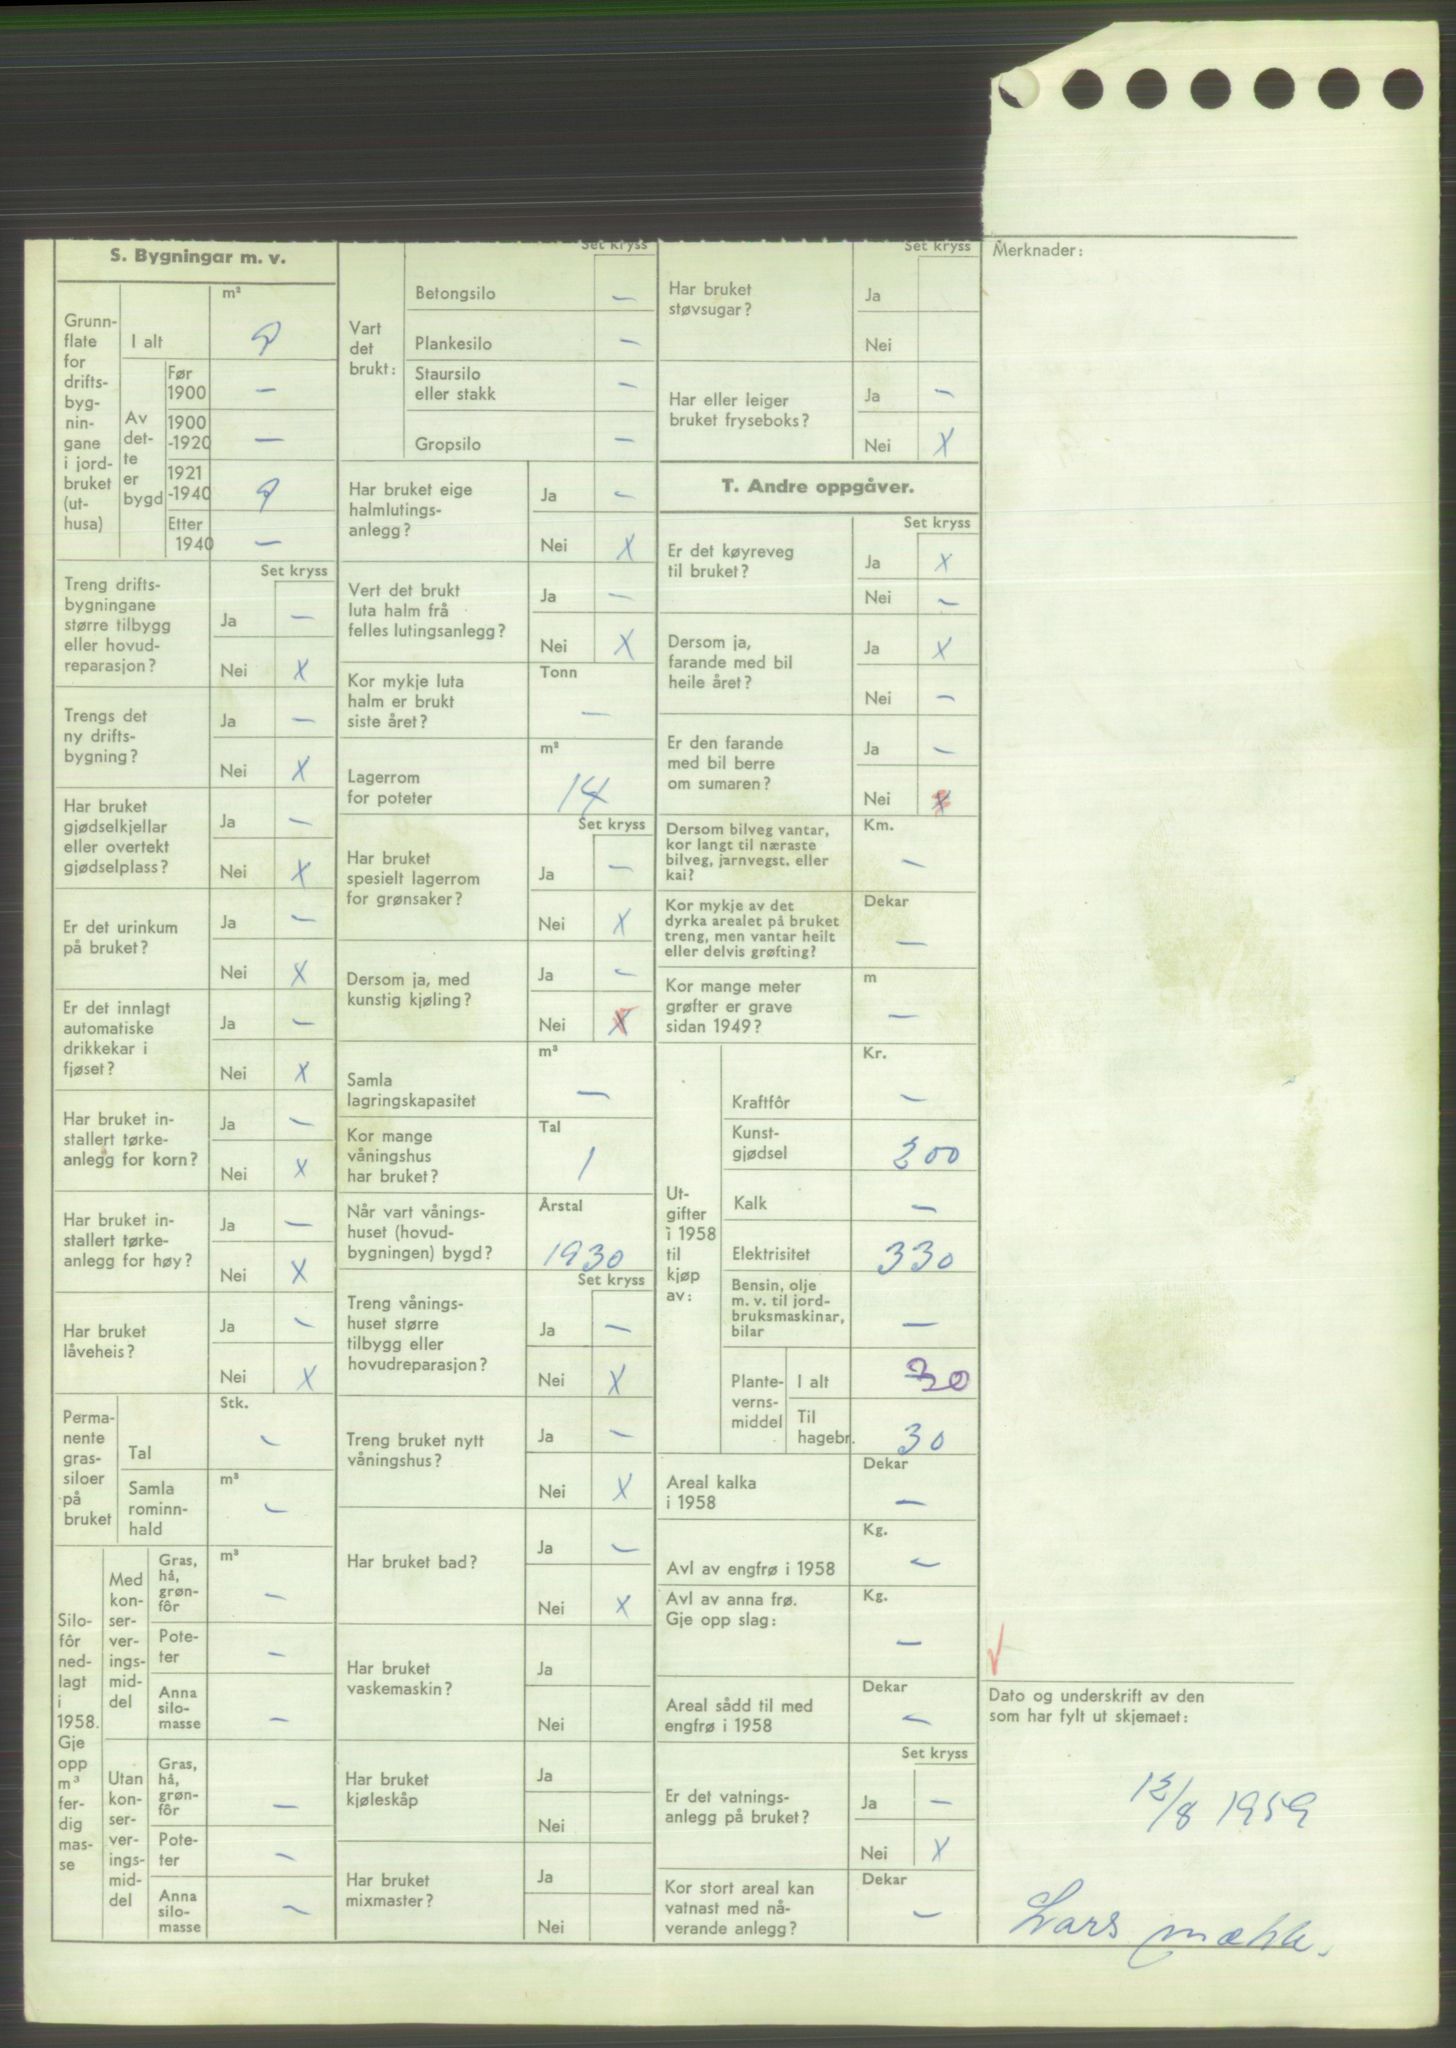 S. Bygningar m. v.
Grunn-
flate
for
drifts-
byg-
nin-
gane
i jord-
bruket
(ut-
husa)
m²
I alt
9
Av
det-
te
er
bygd
Før
1900
—
1900
-1920
—
1921
-1940
9
Etter
1940
—
Set kryss
Treng drifts-
bygningane
større tilbygg
eller hovud-
reparasjon?
Ja —
Nei X
Trengs det
ny drifts-
bygning?
Ja —
Nei X
Har bruket
gjødselkjellar
eller overtekt
gjødselplass?
Ja —
Nei X
Er det urinkum
på bruket?
Ja —
Nei X
Er det innlagt
automatiske
drikkekar i
fjøset?
Ja —
Nei X
Har bruket in-
stallert tørke-
anlegg for korn?
Ja —
Nei X
Har bruket in-
stallert tørke-
anlegg for høy?
Ja —
Nei X
Har bruket
låveheis?
Ja —
Nei X
Perma-
nente
gras-
siloer
på
bruket
Stk.
Tal —
m³
Samla
rominn-
hald
—
Silo-
fôr
ned-
lagt
i
1958.
Gje
opp
m³
fer-
dig
mas-
se
Med
kon-
ser-
ver-
ings-
mid-
del
m³
Gras,
hå,
grøn-
fôr
—
Pote-
ter
—
Anna
silo-
masse
—
Utan
kon-
ser-
ver-
ings-
mid-
del
Gras,
hå,
grøn-
fôr
—
Pote-
ter
—
Anna
silo-
masse
—
Set kryss
Vart
det
brukt:
Betongsilo —
Plankesilo —
Staursilo
eller stakk —
Gropsilo —
Har bruket eige
halmlutings-
anlegg?
Ja —
Nei X
Vert det brukt
luta halm frå
felles lutingsanlegg?
Ja —
Nei X
Kor mykje luta
halm er brukt
siste året?
Tonn
—
Lagerrom
for poteter
m²
14
Set kryss
Har bruket
spesielt lagerrom
for grønsaker?
Ja —
Nei X
Dersom ja, med
kunstig kjøling?
Ja —
Nei X
Samla
lagringskapasitet
m³
—
Kor mange
våningshus
har bruket?
Tal
1
Når vart vånings-
huset (hovud-
bygningen) bygd?
Årstal
1930
Set kryss
Treng vånings-
huset større
tilbygg eller
hovudreparasjon?
Ja —
Nei X
Treng bruket nytt
våningshus?
Ja —
Nei X
Har bruket bad?
Ja —
Nei X
Har bruket
vaskemaskin?
Ja
Nei
Har bruket
kjøleskåp
Ja
Nei
Har bruket
mixmaster?
Ja
Nei
Set kryss
Har bruket
støvsugar?
Ja
Nei
Har eller leiger
bruket fryseboks?
Ja —
Nei X
T. Andre oppgåver.
Set kryss
Er det køyreveg
til bruket?
Ja X
Nei —
Dersom ja,
farande med bil
heile året?
Ja X
Nei —
Er den farande
med bil berre
om sumaren?
Ja —
Nei X
Dersom bilveg vantar,
kor langt til næraste
bilveg, jarnvegst. eller
kai?
Km.
—
Kor mykje av det
dyrka arealet på bruket
treng, men vantar heilt
eller delvis grøfting?
Dekar
—
Kor mange meter
grøfter er grave
sidan 1949?
m
—
Ut-
gifter
i 1958
til
kjøp
av:
Kr.
Kraftfôr —
Kunst-
gjødsel 200
Kalk —
Elektrisitet 330
Bensin, olje
m. v. til jord-
bruksmaskinar,
bilar —
Plante-
verns-
middel
I alt 30
Til
hagebr. 30
Areal kalka
i 1958
Dekar
—
Avl av engfrø i 1958
Kg.
—
Avl av anna frø.
Gje opp slag:
Kg.
—
Areal sådd til med
engfrø i 1958
Dekar
—
Set kryss
Er det vatnings-
anlegg på bruket?
Ja —
Nei X
Kor stort areal kan
vatnast med nå-
verande anlegg?
Dekar
—
Merknader:
Dato og underskrift av den
som har fylt ut skjemaet:
12/8 1959
Lars Mæhle.